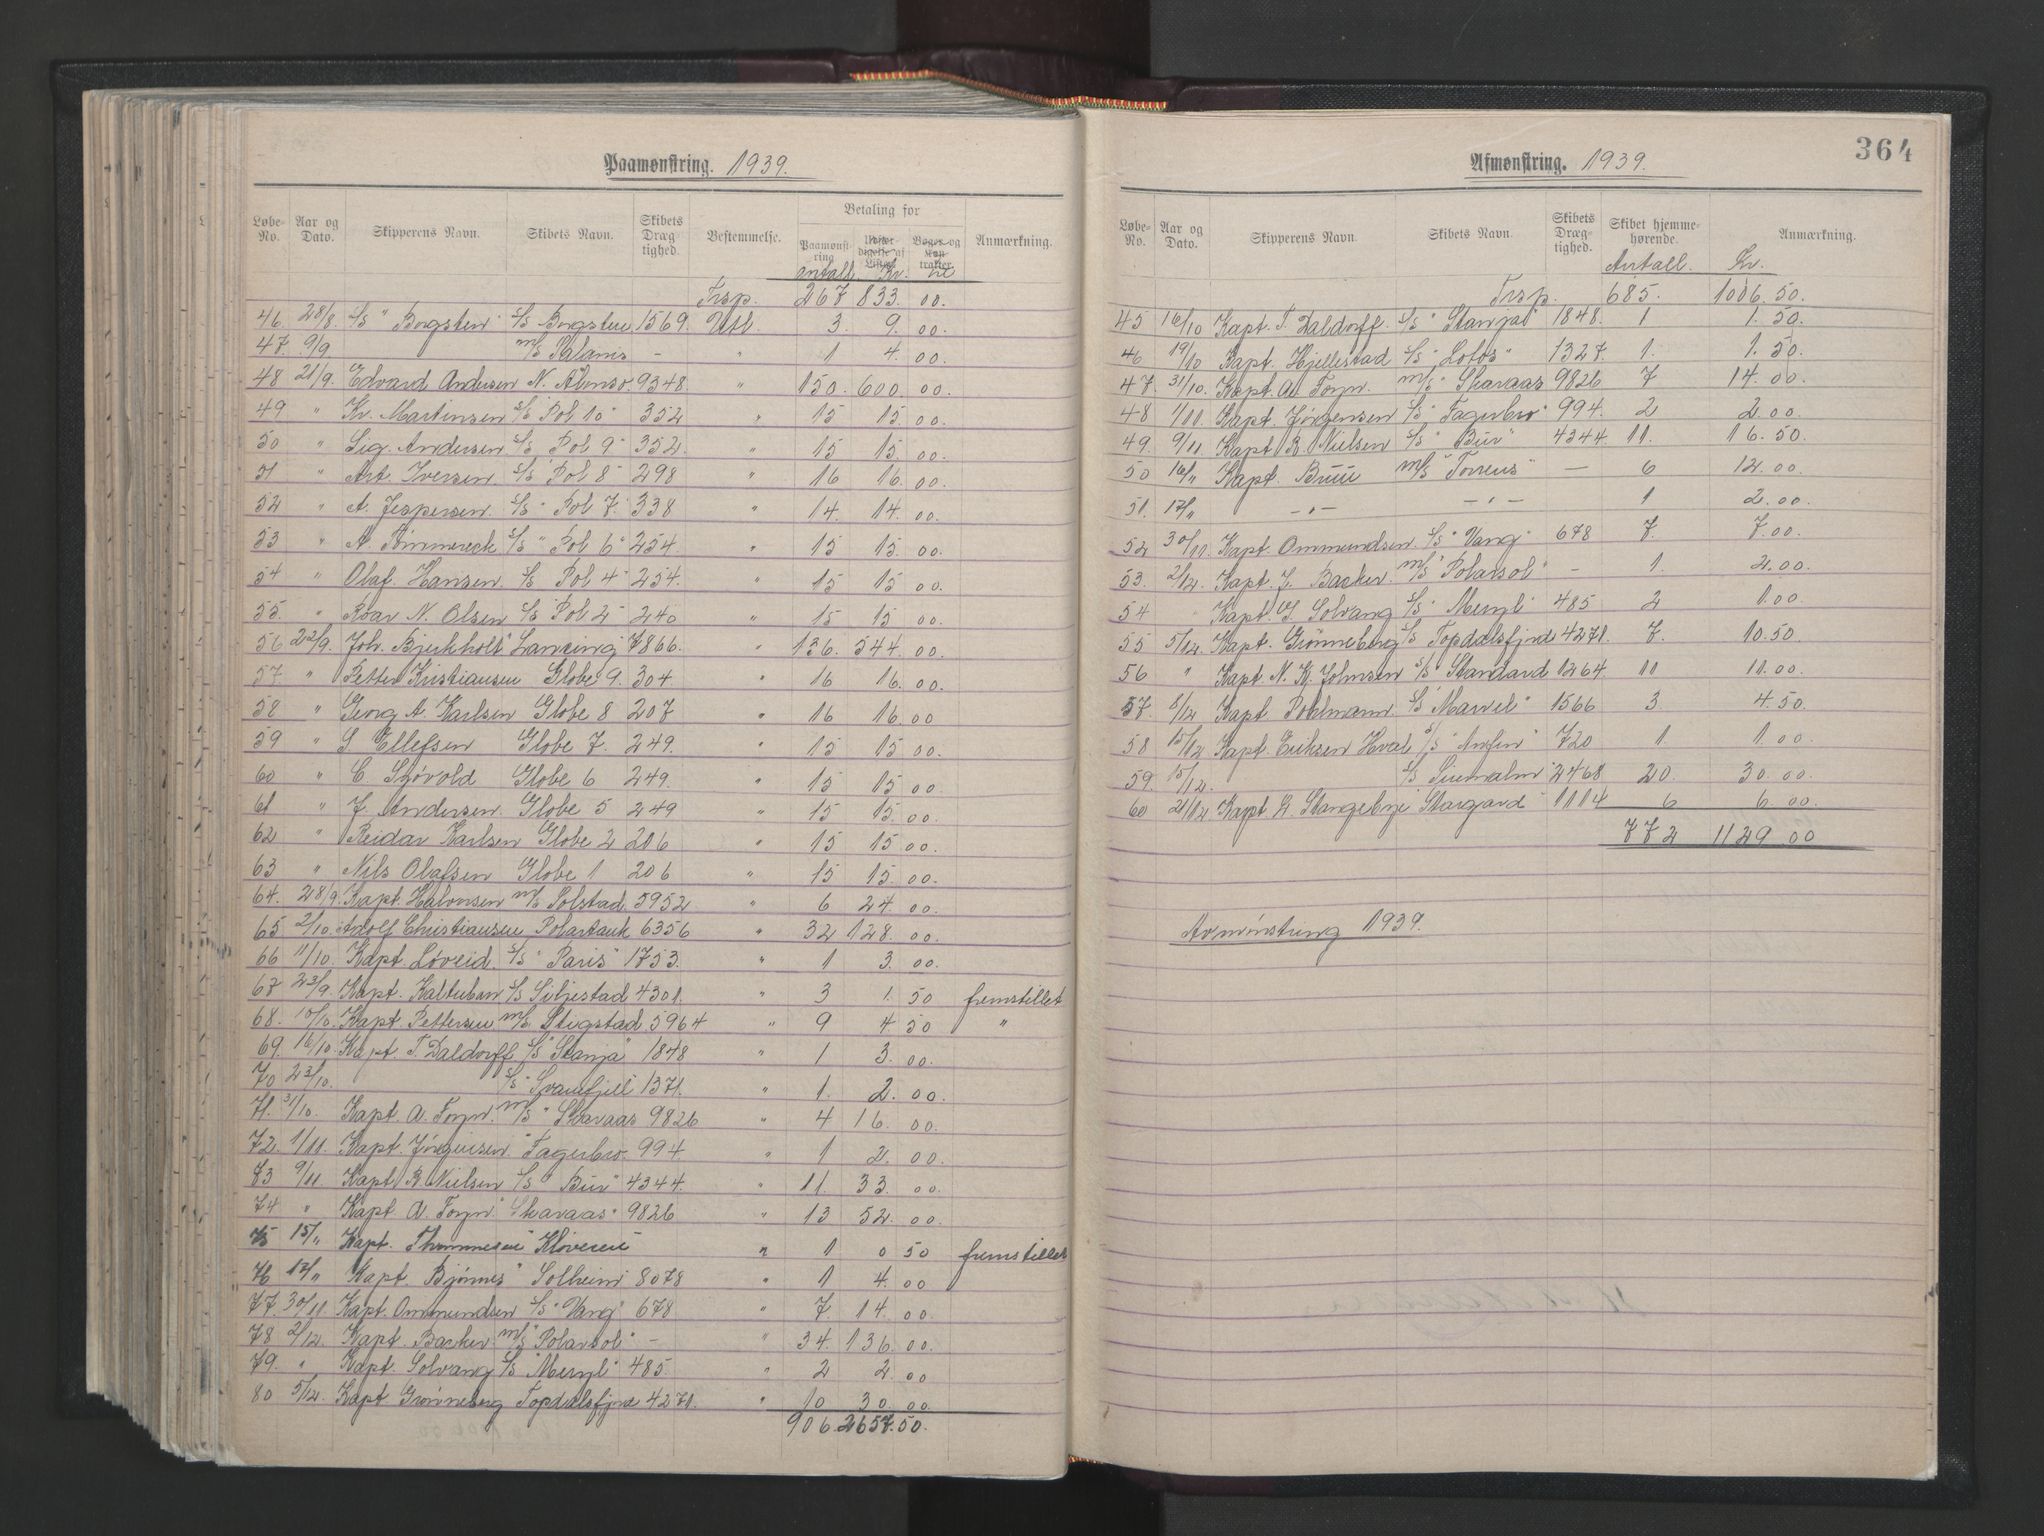 Paamønstring. 1939.
Løbe-No. Aar og Dato. Skipperens Navn. Skibets Navn. Skibets Drægtighed. Bestemmelse. Betaling for Paamønstring Udfærdigelse af Lister Bøger og Kontrakter Anmærkning.
antall Kr.
Trsp. 267 833. 00.
46. 28/8. S/S "Bogsten" S/S Bogsten 1569. Utl. 3. 9. 00.
47. 9/9 m/S Palanis - " 1 4. 00.
48 21/9. Edvard Andersen N. T. 9348. " 150. 600. 00.
49 " Kr. Martinsen S/S "Pol 10" 352 " 15 15. 00.
50 " Sig. Andersen S/S Pol 9" 352. " 15 15. 00.
51 " Art. Iversen S/S "Pol 8" 298 " 16 16. 00.
52 " A. Jespersen S/S "Pol 7. 338 " 14. 14. 00.
53 " A. S/S "Pol 6" 254. " 15 15. 00.
54 " Olaf. Hansen S/S Pol 4" 254. " 15 15 00.
55. " Roar N. Olsen S/S "Pol 2" 240 " 15 15. 00.
56 22/9. Joh. Bjerkholt "Lancing" 7866. " 136. 544. 00.
57 " Petter Kristiansen Globe 9. 304 " 16 16. 00.
58 " Georg A. Karlsen Globe 8 207 " 16 16. 00
59 " S Ellefsen Globe 7. 249. " 15 15 00.
60 " C. Sjøvold Globe 6 249. " 15 15 00.
61 " J. Andersen. Globe 5 249 " 15 15. 00.
62 " Reidar Karlsen Globe 2 206 " 15 15 00.
63 " Nils Olafsen Globe 1 206 " 15 15. 00.
64. 28/9. Kapt. Halvorsen m/S Solstad. 5952 " 6 24. 00.
65 2/10. Adolf Christiansen Polartank 6356 " 32 128. 00.
66 11/10. Kapt. Løveid. S/S "Paris" 1753. " 1 3. 00.
67 23/9. Kapt. S/S Siljestad 4301. " 3 1. 50 fremstillet
68. 10/10. Kapt Pettersen m/S Stigstad 5964 " 9 4 50 "
69. 16/10. Kapt. T. Daldorff S/S "Skanja" 1848 " 1 3. 00.
70 23/10. S/S "Svanfjell" 1371. " 1. 2. 00.
71. 31/10. Kapt A. Forjn. m/S "Skaraas 9826 " 4 16. 00.
72. 1/11. Kapt. Jörgensen "Fagerbro. 994 " 1 2. 00.
73 9/11. Kapt R. Nielsen S/S "Bur" 4344. " 11. 33. 00.
74 " Kapt. A. Forjn "Skaraas" 9826 " 13 52. 00.
75 15/" Kapt. Thommesen Kloveren " 1 0 50 fremstillet
76 17/" Kapt. Bjönnes "Solheim" 8078 " 1 4. 00
77 30/11. Kapt. Ommundsen S/S "Vang" 678 " 7. 14. 00.
78 2/12. Kapt. Backer m/S "Polarsol" - " 34. 136. 00.
79. " Kapt. Solvang S/S "Mersyl" 485. " 2 2. 00
80 5/12. Kapt Grönneberg Topdalsfjord 4271. " 10 30. 00.
906. 2657. 50.
364
Afmønstring. 1939.
Løbe-No. Aar og Dato. Skipperens Navn. Skibets Navn. Skibets Drægtighed. Skibet hjemmehørende. Anmærkning.
Antall. Kr.
Trsp. 685. 1006. 50.
45 16/10 Kapt. T. Daldorff. S/S "Skanja" 1848. 1 1. 50.
46 19/10 Kapt. Hjellestad S/S "Lotos" 1327. 1. 1. 50.
47. 31/10. Kapt. A. Forjn. m/S "Skaraas 9826 7 14. 00.
48 1/11 Kapt. Jørgensen S/S "Fagerbro" 994. 2 2. 00.
49. 9/11 Kapt R. Nielsen S/S "Bur" 4344 11. 16. 50.
50 16/" Kapt. Bruu m/S "Torrens" — 6 12. 00.
51. 17/" -"- -"- 1 2. 00.
52 30/11. Kapt. Ommundsen. S/S "Vang" 678 7. 7. 00.
53. 2/12 Kapt. J. Backer. m/S "Polarsol" - 1. 2. 00.
54 " Kapt. G Solvang S/S "Mersyl" 485 2 1. 00
55 5/12 Kapt. Grönneberg S/S Topdalsfjord 4271. 7. 10. 50.
56 " Kapt. N. K. Johnsen S/S "Standard 1264. 11 11. 00.
57. 8/12 Kapt Pohlmann S/S "Marvel" 1566 3. 4. 50.
58 15/12 Kapt. Eriksen Hval S/S "Anfin" 720 1 1. 00.
59. 15/12. S/S "Siremalm" 2468 20. 30. 00.
60 21/12 Kapt. L. Stangebye Stargard 1114 6 6. 00.
772 1129 00
Avmönstring 1939.